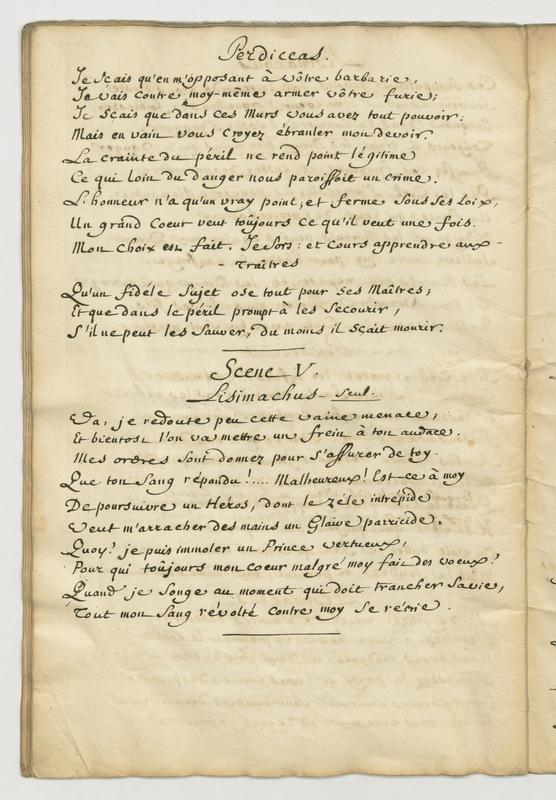 Perdiccas.
Je sçais qu'en m'opposant à vôtre barbarie,
Je vais contre moy-même armer vôtre furie;
Je sçais que dans ces Murs vous avez tout pouvoir:
Mais en vain vous croyez ébranler mon devoir.
La crainte du péril ne rend point légitime
Ce qui loin du danger nous paroissoit un crime.
L'honneur n'a qu'un vray point, et ferme sous ses Loix,
Un grand Coeur veut toûjours ce qu'il veut une fois.
Mon choix est fait. Je Sors: et cours apprendre aux -
- Traîtres
Qu'un fidéle Sujet ose tout pour ses Maîtres;
Et que dans le péril prompt à les Secourir,
S'il ne peut les Sauver, du moins il sçait mourir.
Scene V.
Lisimachus - Seul.
Va, je redoute peu cette vaine menace;
Et bientost l'on va mettre un frein à ton audace.
Mes ordres sont donnez pour s'assurer de toy.
Que ton Sang répondu!.... Malheureux! Est-ce à moy
De poursuivre un Héros, dont le zéle intrépide
Veut m'arracher des mains un Glaive parricide.
Quoy? je puis immoler un Prince vertueux,
Pour qui toûjours mon coeur malgré moy fait des voeux?
Quand je Songe au moment qui doit trancher sa vie,
Tout mon Sang révolté contre moy se récrie.